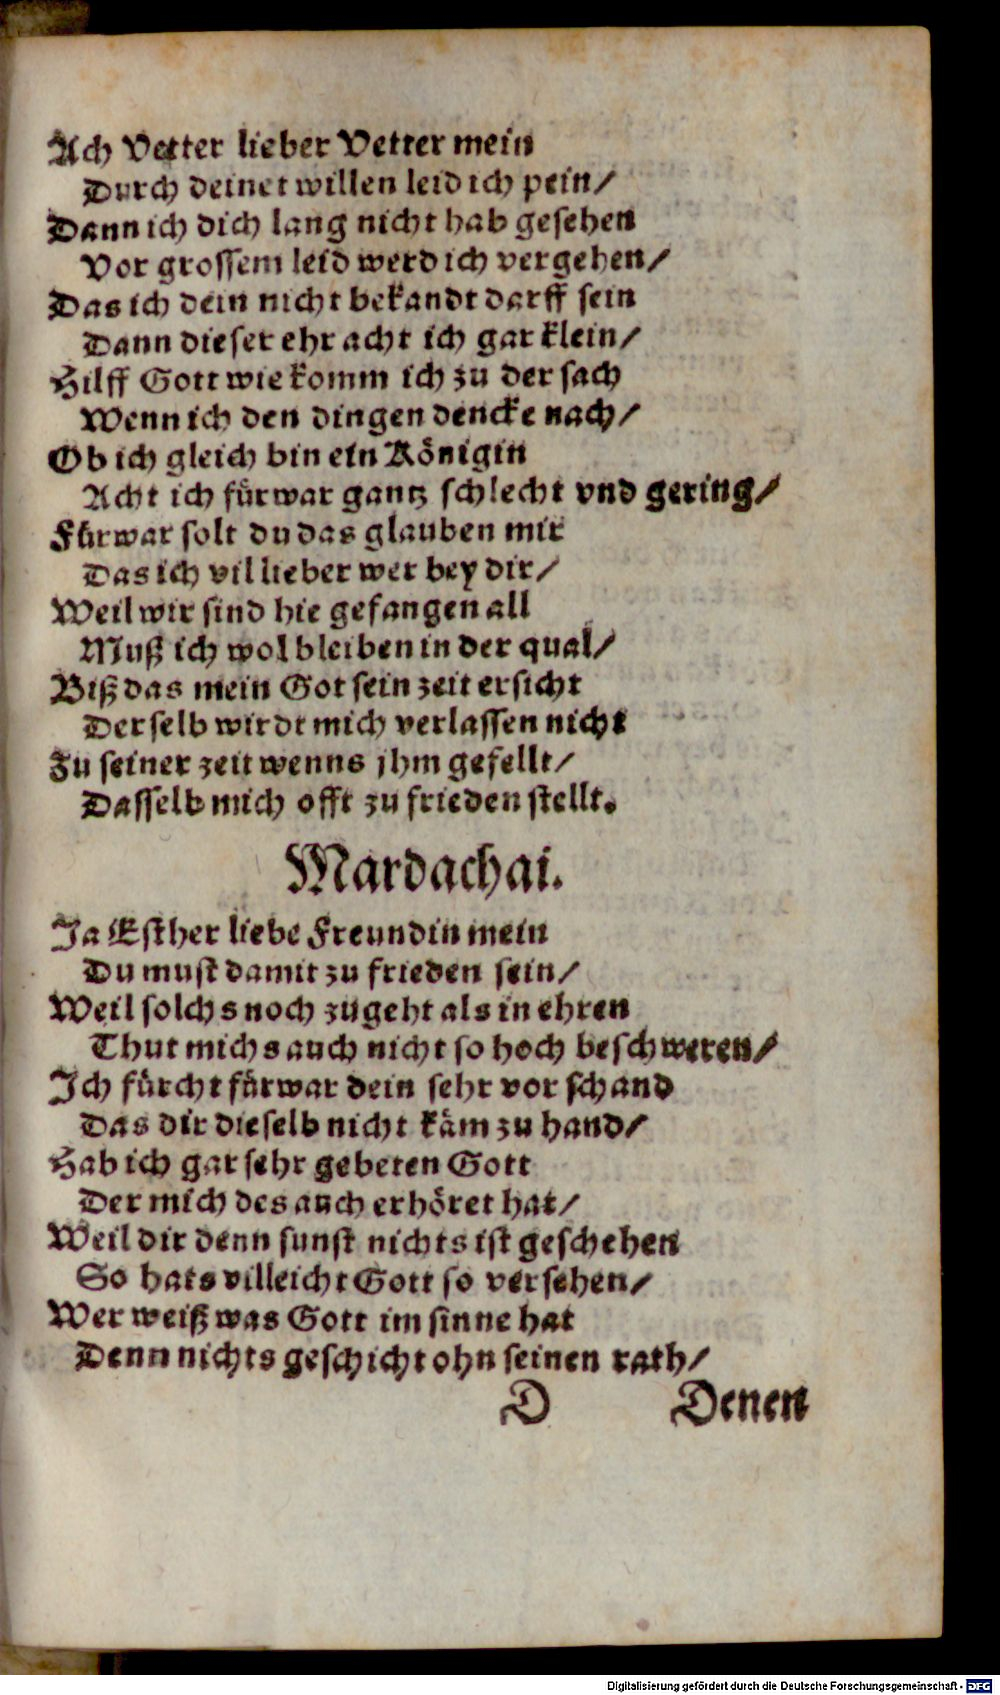 Ach Vetter lieber Vetter mein
Durch deinet willen leid ich pein/
Dann ich dich lang nicht hab gesehen
Vor grossem leid werd ich vergehen/
Das ich dein nicht bekandt darff sein
Dann dieser ehr acht ich gar klein/
Hilff Gott wie komm ich zu der sach
Wenn ich den dingen dencke nach/
Ob ich gleich bin ein Königin
Acht ich fürwar gantz schlecht vnd gering/
Fürwar solt du das glauben mir
Das ich vil lieber wer bey dir/
Weil wir sind hie gefangen all
Muß ich wol bleiben in der qual/
Biß das mein Got sein zeit ersicht
Derselb wirdt mich verlassen nicht
Zu seiner zeit wenns jhm gefellt/
Dasselb mich offt zu frieden stellt.
Mardachai.
Ja Esther liebe Freundin mein
Du must damit zu frieden sein/
Weil solchs noch zugeht als in ehren
Thut michs auch nicht so hoch beschweren/
Ich fürcht fürwar dein sehr vor schand
Das dir dieselb nicht käm zu hand/
Hab ich gar sehr gebeten Gott
Der mich des auch erhöret hat/
Weil dir denn sunst nichts ist geschehen
So hats villeicht Gott so versehen/
Wer weiß was Gott im sinne hat
Denn nichts geschicht ohn seinen rath/
D Denen
Digitalisierung gefördert durch die Deutsche Forschungsgemeinschaft - DFG